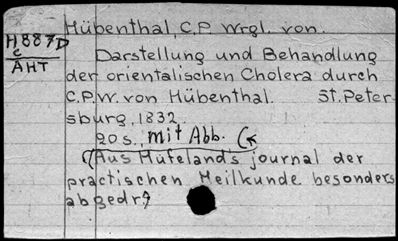 Hübenthal, C.P. Wrgl. von.
H887D
c
AHT
Darstellung und Behandlung
der orientalischen Cholera durch
C.P.W. von Hübenthal. St. Peter-
sburg, 1832.
20 s., mit Abb.
(Aus Hufelands journal der
practischen Heilkunde besonders
abgedr.)